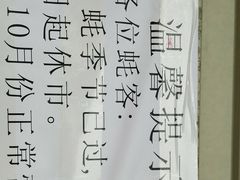 温馨提示
各位蚝客:
蚝季节已过,
月起休市。
10月份正常